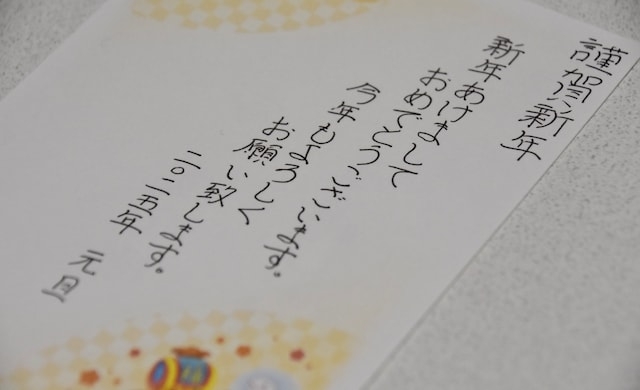 謹賀新年
新年あけまして
おめでとうございます。
今年もよろしく
お願い致します。
二〇二五年
元旦